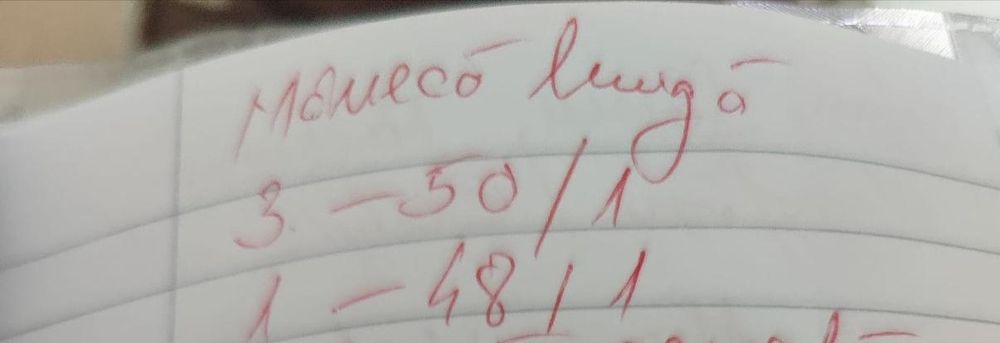 Mânecă lungă
3 - 50 / 1
1 - 48 / 1